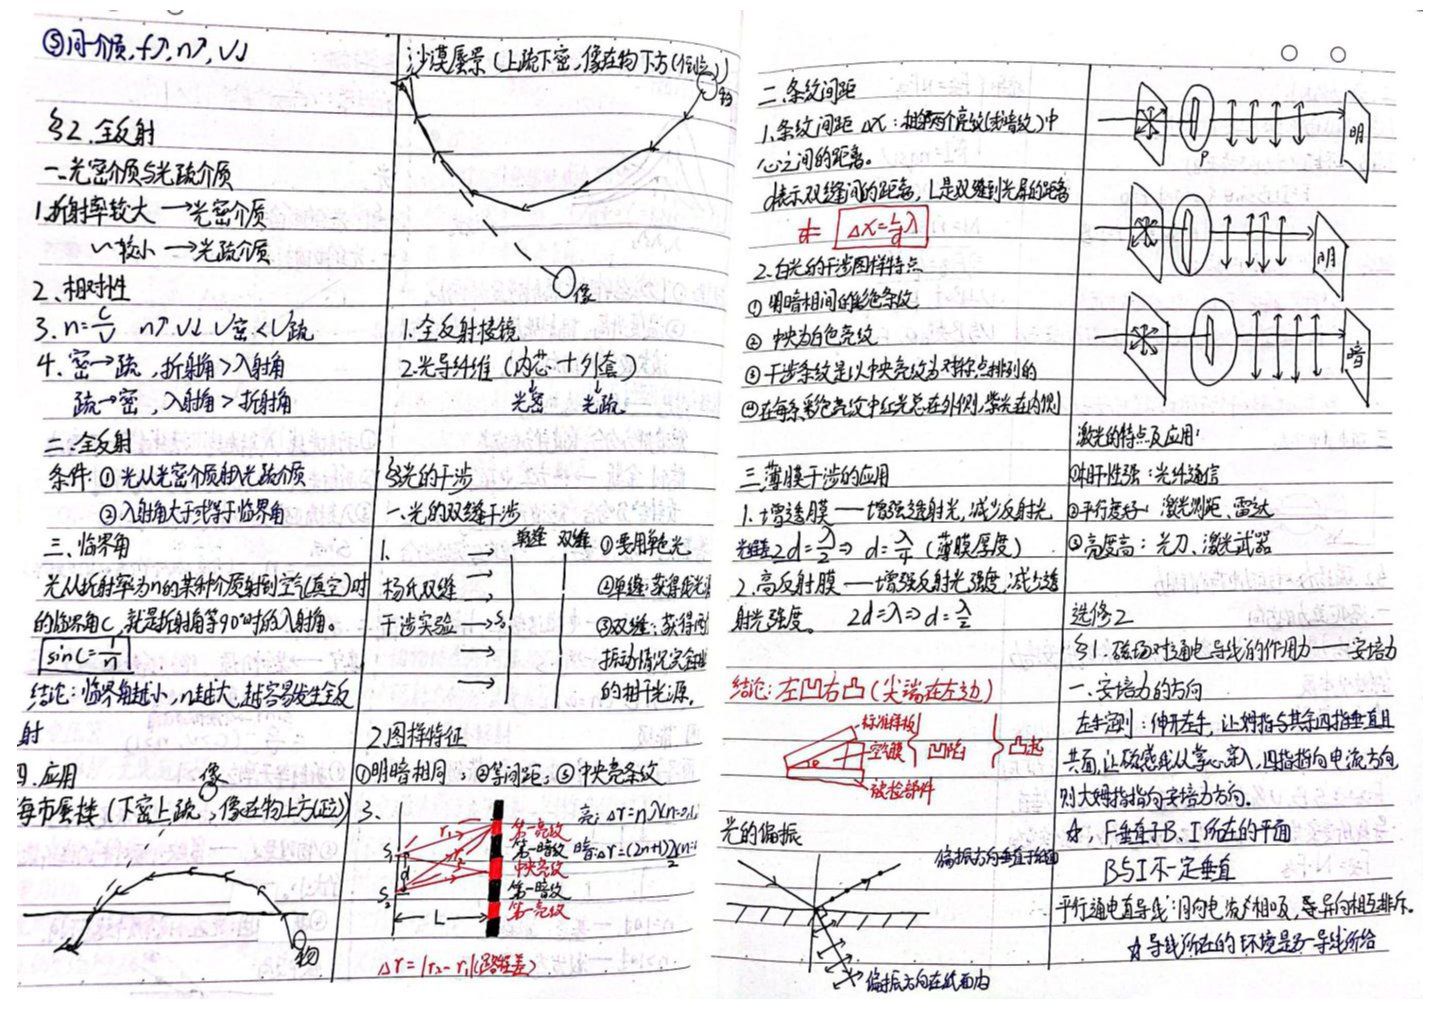 ⑤同一介质,f↗,n↗,v↓
§2.全反射
一、光密介质与光疏介质
1.折射率较大→光密介质
〃较小→光疏介质
2、相对性
3、n=c/v n↗ v↓ v密<v疏
4、密→疏,折射角>入射角
疏→密,入射角>折射角
二、全反射
条件:①光从光密介质射入光疏介质
②入射角大于或等于临界角
三、临界角
光从折射率为n的某种介质射到空气(真空)时
的临界角C,就是折射角等90°时的入射角。
sinC=1/n
结论:临界角越小,n越大,越容易发生全反
射
四、应用
海市蜃楼(下密上疏,像在物上方(正立))
像
物
沙漠蜃景(上疏下密,像在物下方(倒立))
物
像
1.全反射棱镜
2.光导纤维(内芯+外套)
光密 光疏
§光的干涉
一、光的双缝干涉
1、
杨氏双缝
干涉实验
单缝 双缝
S
①要用单色光
②单缝:获得线光源
③双缝:获得两
振动情况完全
的相干光源。
2.图样特征
①明暗相间 ②等间距;③中央亮条纹
3、
S₁
S₂
d
r₁
r₂
L
第一亮纹
第一暗纹
中央亮纹
第一暗纹
第一亮纹
亮:Δr=nλ(n=0,1
暗:Δr=(2n+1)λ/2(n=
Δr=|r₂-r₁|(路程差)
二、条纹间距
1.条纹间距Δx:相邻两个亮纹(或暗纹)中
心之间的距离。
d表示双缝间的距离,L是双缝到光屏的距离
Δx=L/d λ
2.白光的干涉图样特点
①明暗相间的彩色条纹
②中央为白色亮纹
③干涉条纹是以中央亮纹为对称点排列的
④在每条彩色亮纹中红光总在外侧,紫光在内侧
三、薄膜干涉的应用
1.增透膜——增强透射光,减少反射光
2d=λ/2⇒d=λ/4(薄膜厚度)
2.高反射膜——增强反射光强度,减少透
射光强度。 2d=λ⇒d=λ/2
结论:左凹右凸(尖端在左边)
标准样板
空气膜
被检部件
凹陷
凸起
光的偏振
偏振方向垂直于纸面
偏振方向在纸面内
P
明
明
暗
激光的特点及应用:
①相干性强:光纤通信
②平行度好:激光测距、雷达
③亮度高:光刀、激光武器
选修2
§1.磁场对通电导线的作用力——安培力
一、安培力的方向
左手定则:伸开左手,让拇指与其余四指垂直且
共面,让磁感线从掌心穿入,四指指向电流方向,
则大拇指指向安培力方向。
☆,F垂直于B、I所在的平面
B与I不一定垂直
平行通电直导线:同向电流相吸,异向相互排斥。
☆导线所在的环境是另一导线所给